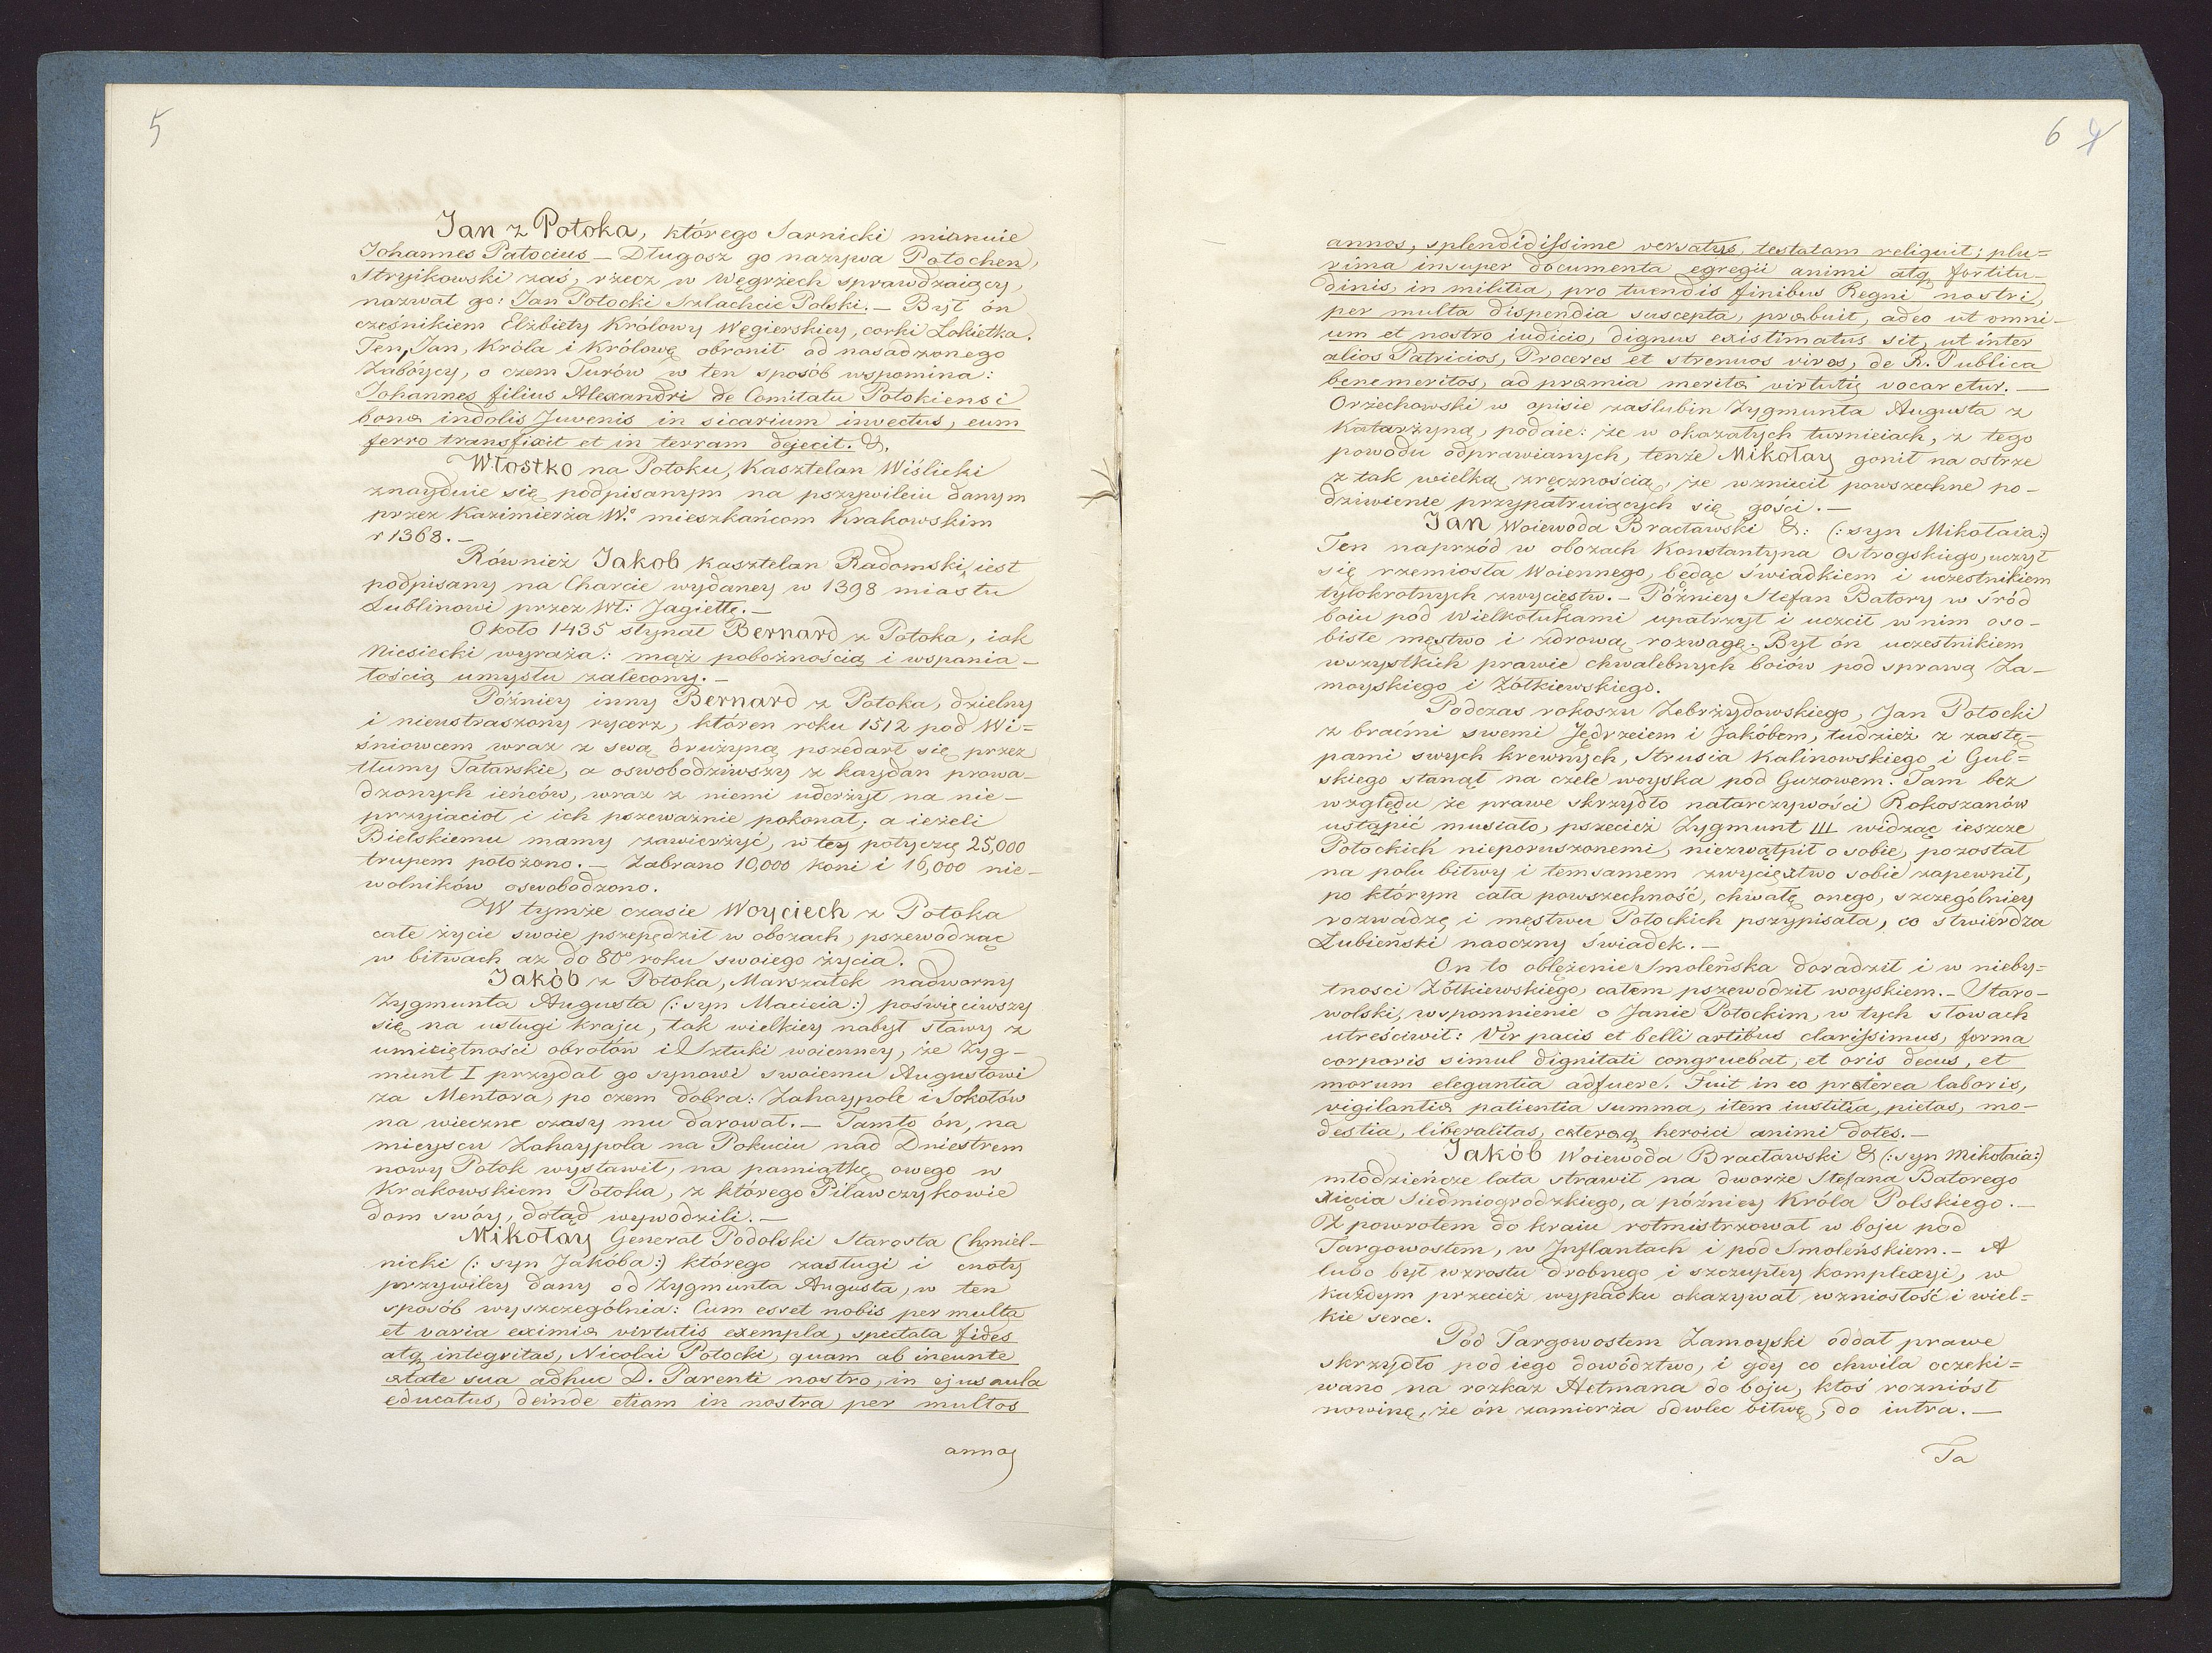 5
Jan z Potoka, którego Sarnicki mianuie
Johannes Patocius – Długosz go nazywa Potochen,
Stryikowski zaś, rzecz w Węgrzech sprawdzaiący,
nazwał go: Jan Potocki Szlachcic Polski. – Był ón
cześnikiem Elżbiety Królowy Węgierskiey, corki Łokietka.
Ten, Jan, Króla i Królowę obronił od nasadzonego
Zabóycy, o czem Turów w ten sposób wspomina:
Johannes filius Alexandri de Comitatu Potokiensi
bonæ indolis Juvenis in sicarium invectus, eum
ferro transfixit et in terram dejecit. &.
Włostko na Potoku, Kasztelan Wiślicki
znayduie się podpisanym na pszywileiu danym
przez Kazimierża W.º mieszkańcom Krakowskim
r 1368. –
Również Jakob Kasztelan Radomski, iest
podpisany na Charcie wydaney w 1398 miastu
Lublinowi przez Wł: Jagiełłę. –
Około 1435 słynął Bernard z Potoka, iak
Niesiecki wyraża: mąż pobożnością i wspania-
łością umysłu zalecony. –
Późniey inny Bernard z Potoka, dzielny
i nieustraszony rycerz, któren roku 1512 pod Wi=
śniowcem wraz z swą drużyną pszedarł się przez
tłumy Tatarskie, a oswobodziwszy z kaydan prowa-
dzonych ieńców, wraz z niemi uderżył na nie-
przyiaciół i ich pszeważnie pokonał; a ieżeli
Bielskiemu mamy zawierżyć, w tey potyczę 25,000
trupem położono. – Zabrano 10,000 koni i 16,000 nie-
wolników oswobodzono.
W tymże czasie Woyciech z Potoka
całe życie swoie pszepędził w obozach, pszewodząc
w bitwach aż do 80º roku swoiego życia.
Jakób z Potoka, Marszałek nadworny
Zygmunta Augusta (: syn Macieia :) poświęciwszy
się na usługi kraju, tak wielkiey nabył sławy z
umieiętności obrotów i Sztuki woienney, że Zyg-
munt I przydał go synowi swoiemu Augustowi
za Mentora, po czem dobra: Zahaypole i Sokołów
na wieczne czasy mu darował. – Tamto ón, na
mieyscu Zahaypola na Pokuciu nad Dniestrem
nowy Potok wystawił, na pamiątkę owego w
Krakowskiem Potoka, z którego Pilawczykowie
dom swóy, dotąd wywodzili. –
Mikołay Generał Podolski Starosta Chmiel-
nicki (: syn Jakóba :) którego zasługi i cnoty
przywiley dany od Zygmunta Augusta, w ten
sposób wyszczególnia: Cum esset nobis per multa
et varia eximiæ virtutis exempla, spectata fides
atq integritas, Nicolai Potocki, quam ab ineunte
ætate sua adhuc D. Parenti nostro, in ejus aula
educatus, deinde etiam in nostra per multos
annos
6 4
annos, splendidissime versatus, testatam reliquit; plu=
rima insuper documenta egregii animi atq fortitu-
dinis, in militia, pro tuendis finibus Regni nostri,
per multa dispendia suscepta, præbuit, adeo ut omni-
um et nostro iudicio, dignus existimatus sit, ut inter
alios Patricios, Proceres et strenuos viros, de R. Publica
benemeritos, ad præmia meritæ virtutis vocaretur. –
Orżechowski w opisie zaślubin Zygmunta Augusta z
Katarżyną, podaie: że w okazałych turnieiach, z tego
powodu odprawianych, tenże Mikołay gonił na ostrze
z tak wielką zręcznością, że wzniecił powszechne po-
dziwienie przypatruiących się gości. –
Jan Woiewoda Bracławski &: (: syn Mikołaia :)
Ten naprzód w obozach Konstantyna Ostrogskiego, uczył
się rzemiosła Woiennego, będąc świadkiem i uczestnikiem
tylokrotnych zwycięstw. – Późniey Stefan Batory w śród
boiu pod Wielkołukami upatrzył i uczcił w nim oso-
biste męstwo i zdrową rozwagę. Był ón uczestnikiem
wszystkich prawie chwalebnych boiów pod sprawą Za-
moyskiego i Żółkiewskiego.
Podczas rokoszu Zebrżydowskiego, Jan Potocki
z braćmi swemi Jędrzeiem i Jakóbem, tudzież z zastę-
pami swych krewnych, Strusia Kalinowskiego i Gul=
skiego stanął na czele woyska pod Guzowem. Tam bez
względu że prawe skrzydło natarczywości Rokoszanów
ustąpić musiało, pszecież Zygmunt III widząc ieszcze
Potockich nieporuszonemi, niezwątpił o sobie, pozostał
na polu bitwy i temsamem zwycięztwo sobie zapewnił,
po którym cała powszechność, chwałę onego, szczególniey
rozwadzę i męstwu Potockich pszypisała, co stwierdza
Łubieński naoczny świadek. –
On to oblężenie Smoleńska doradził i w nieby=
tnosci Żółkiewskiego, całem pszewodził woyskiem. – Staro-
wolski, wspomnienie o Janie Potockim, w tych słowach
utreściwił: Vir pacis et belli artibus clarissimus, forma
corporis simul dignitati congruebat, et oris decus, et
morum elegantia adfuere. Fuit in eo præterea laboris,
vigilantiæ patientia summa, item iustitia, pietas, mo-
destia, liberalitas, cæteraq heroici animi dotes. –
Jakób Woiewoda Bracławski & (: syn Mikołaia :)
młodzieńcze lata strawił na dworże Stefana Batorego
Xięcia Siedmiogrodzkiego, a późniey Króla Polskiego. –
Z powrotem do kraiu rotmistrzował w boju pod
Targowostem, w Inflantach i pod Smoleńskiem. – A
lubo był wzrostu drobnego i szczupłey komplexyi, w
każdym przecież wypadku okazywał wzniosłość i wiel=
kie serce.
Pod Targowostem Zamoyski oddał prawe
skrzydło pod iego dowództwo, i gdy co chwila oczeki=
wano na rozkaz Hetmana do boju, ktoś rozniósł
nowinę, że ón zamierża odwlec bitwę, do iutra. –
Ta